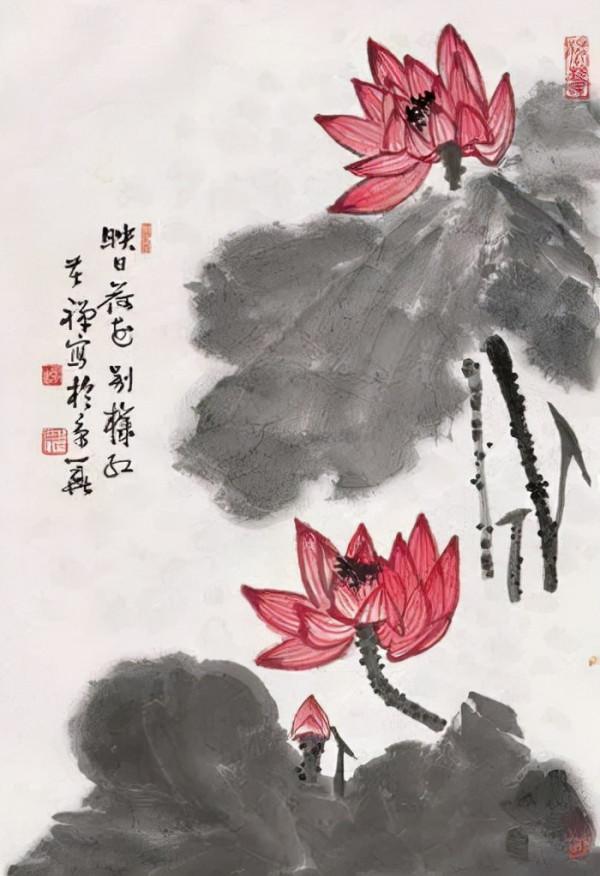 映日荷花别樣红
苦禅寫於京華